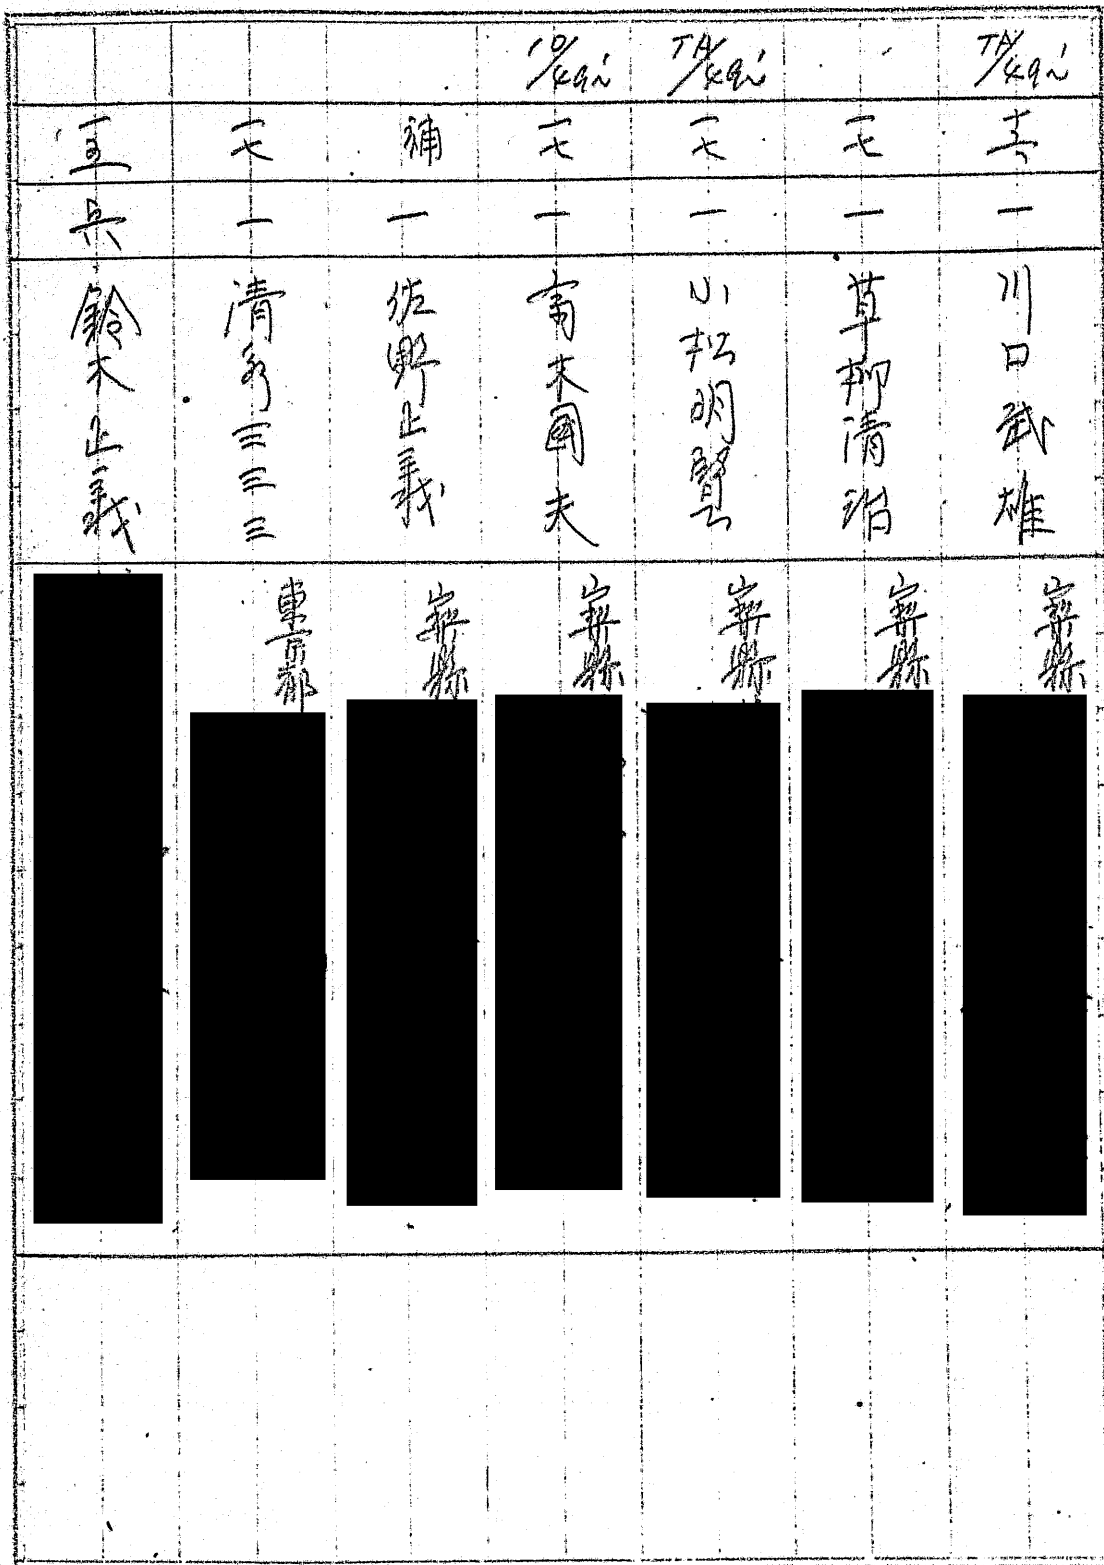 TA/49i
一
川口武雄
縣
一七
一
草柳清治
縣
TA/49i
一七
一
小松明賢
縣
10/49i
一七
一
木國夫
縣
補
一
佐野正義
縣
一七
一
清水三三三
東京都
兵
鈴木正義